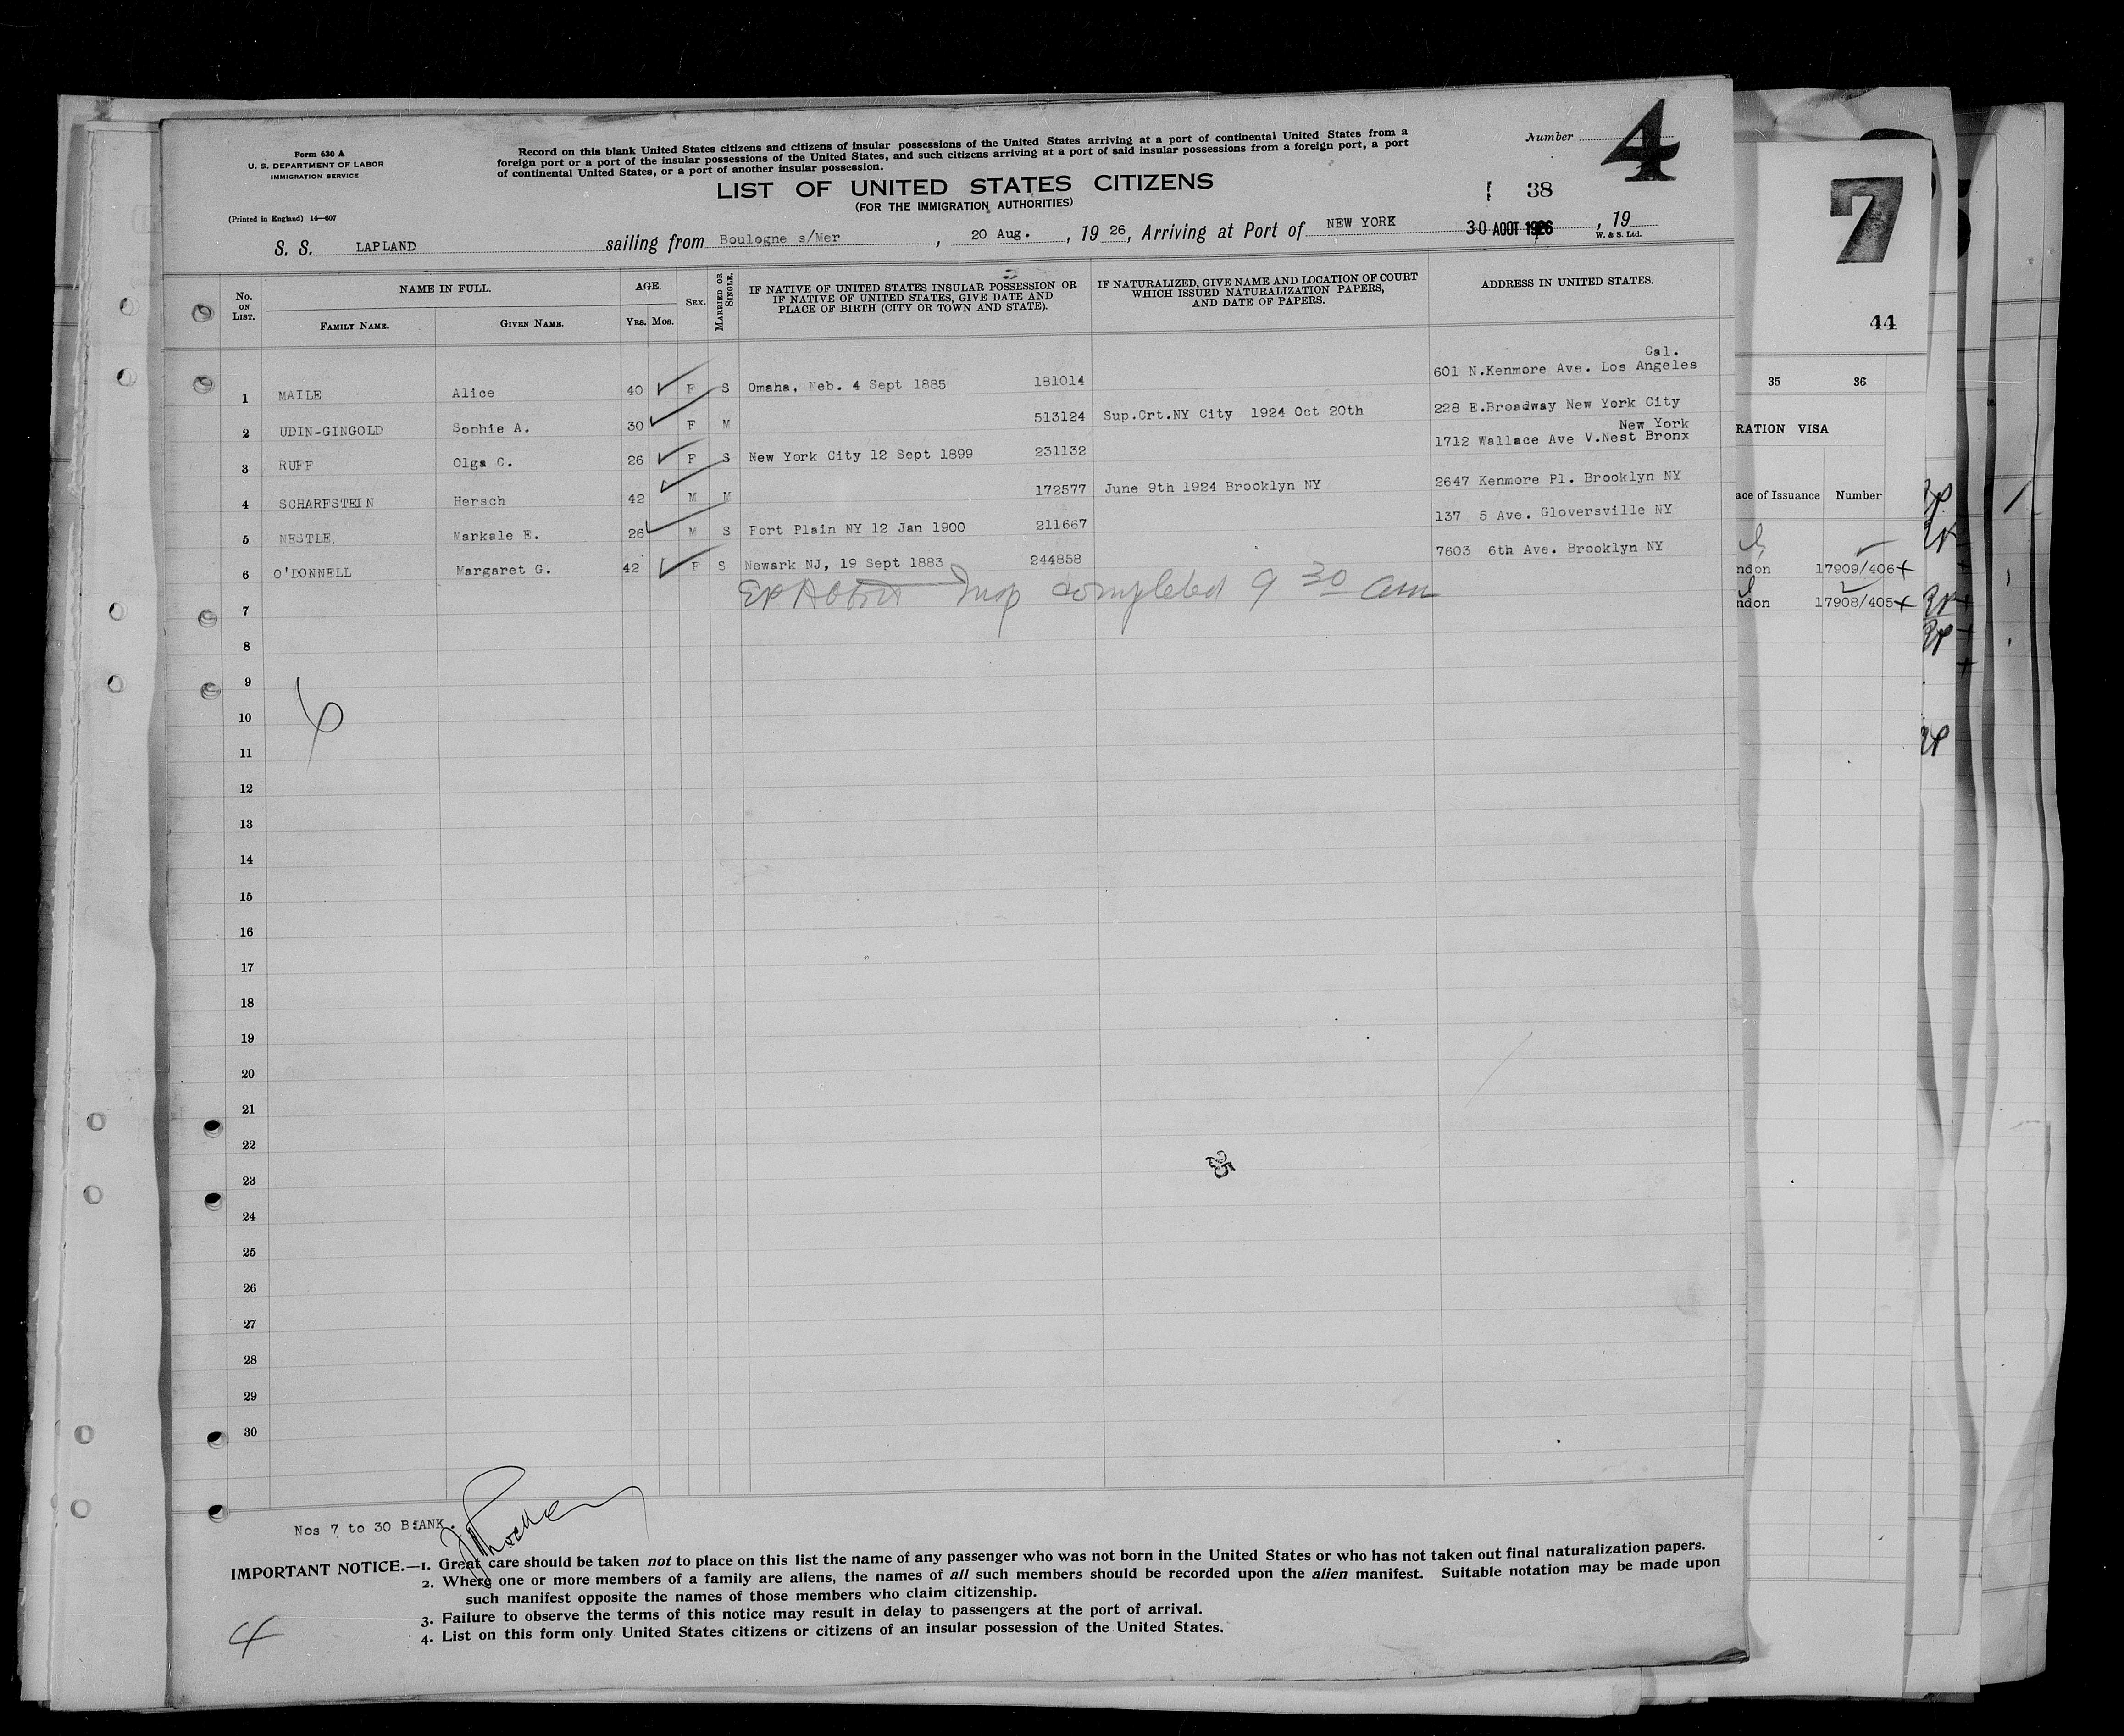 Form 630 A
U. S. DEPARTMENT OF LABOR
IMMIGRATION SERVICE
(Printed in England) 14—607
Record on this blank United States citizens and citizens of insular possessions of the United States arriving at a port of continental United States from a
foreign port or a port of the insular possessions of the United States, and such citizens arriving at a port of said insular possessions from a foreign port, a port
of continental United States, or a port of another insular possession.
Number 4
LIST OF UNITED STATES CITIZENS
(FOR THE IMMIGRATION AUTHORITIES)
38
S. S. LAPLAND sailing from Boulogne s/Mer, 20 Aug., 19 26, Arriving at Port of NEW YORK 30 AOUT 1926, 19
W. & S. Ltd.
No. ON LIST. NAME IN FULL. AGE. SEX. MARRIED OR SINGLE. IF NATIVE OF UNITED STATES INSULAR POSSESSION OR IF NATIVE OF UNITED STATES, GIVE DATE AND PLACE OF BIRTH (CITY OR TOWN AND STATE). IF NATURALIZED, GIVE NAME AND LOCATION OF COURT WHICH ISSUED NATURALIZATION PAPERS, AND DATE OF PAPERS. ADDRESS IN UNITED STATES.
FAMILY NAME. GIVEN NAME. YRS. MOS.
Cal.
1 MAILE Alice 40 F S Omaha, Neb. 4 Sept 1885 181014 601 N.Kenmore Ave. Los Angeles
2 UDIN-GINGOLD Sophie A. 30 F M 513124 Sup.Crt.NY City 1924 Oct 20th 228 E.Broadway New York City
New York
3 RUFF Olga C. 26 F S New York City 12 Sept 1899 231132 1712 Wallace Ave V.Nest Bronx
4 SCHARFSTEIN Hersch 42 M M 172577 June 9th 1924 Brooklyn NY 2647 Kenmore Pl. Brooklyn NY
5 NESTLE. Markale E. 26 M S Fort Plain NY 12 Jan 1900 211667 137 5 Ave. Gloversville NY
6 O'DONNELL Margaret G. 42 F S Newark NJ, 19 Sept 1883 244858 7603 6th Ave. Brooklyn NY
7 Insp completed 9 30 am
8
9
10
6
11
12
13
14
15
16
17
18
19
20
21
22
23
24
25
26
27
28
29
30
Nos 7 to 30 BLANK.
IMPORTANT NOTICE.—1. Great care should be taken not to place on this list the name of any passenger who was not born in the United States or who has not taken out final naturalization papers.
2. Where one or more members of a family are aliens, the names of all such members should be recorded upon the alien manifest. Suitable notation may be made upon
such manifest opposite the names of those members who claim citizenship.
3. Failure to observe the terms of this notice may result in delay to passengers at the port of arrival.
4. List on this form only United States citizens or citizens of an insular possession of the United States.
4
7
44
35 36
RATION VISA
ace of Issuance Number
ndon 17909/406
ndon 17908/405